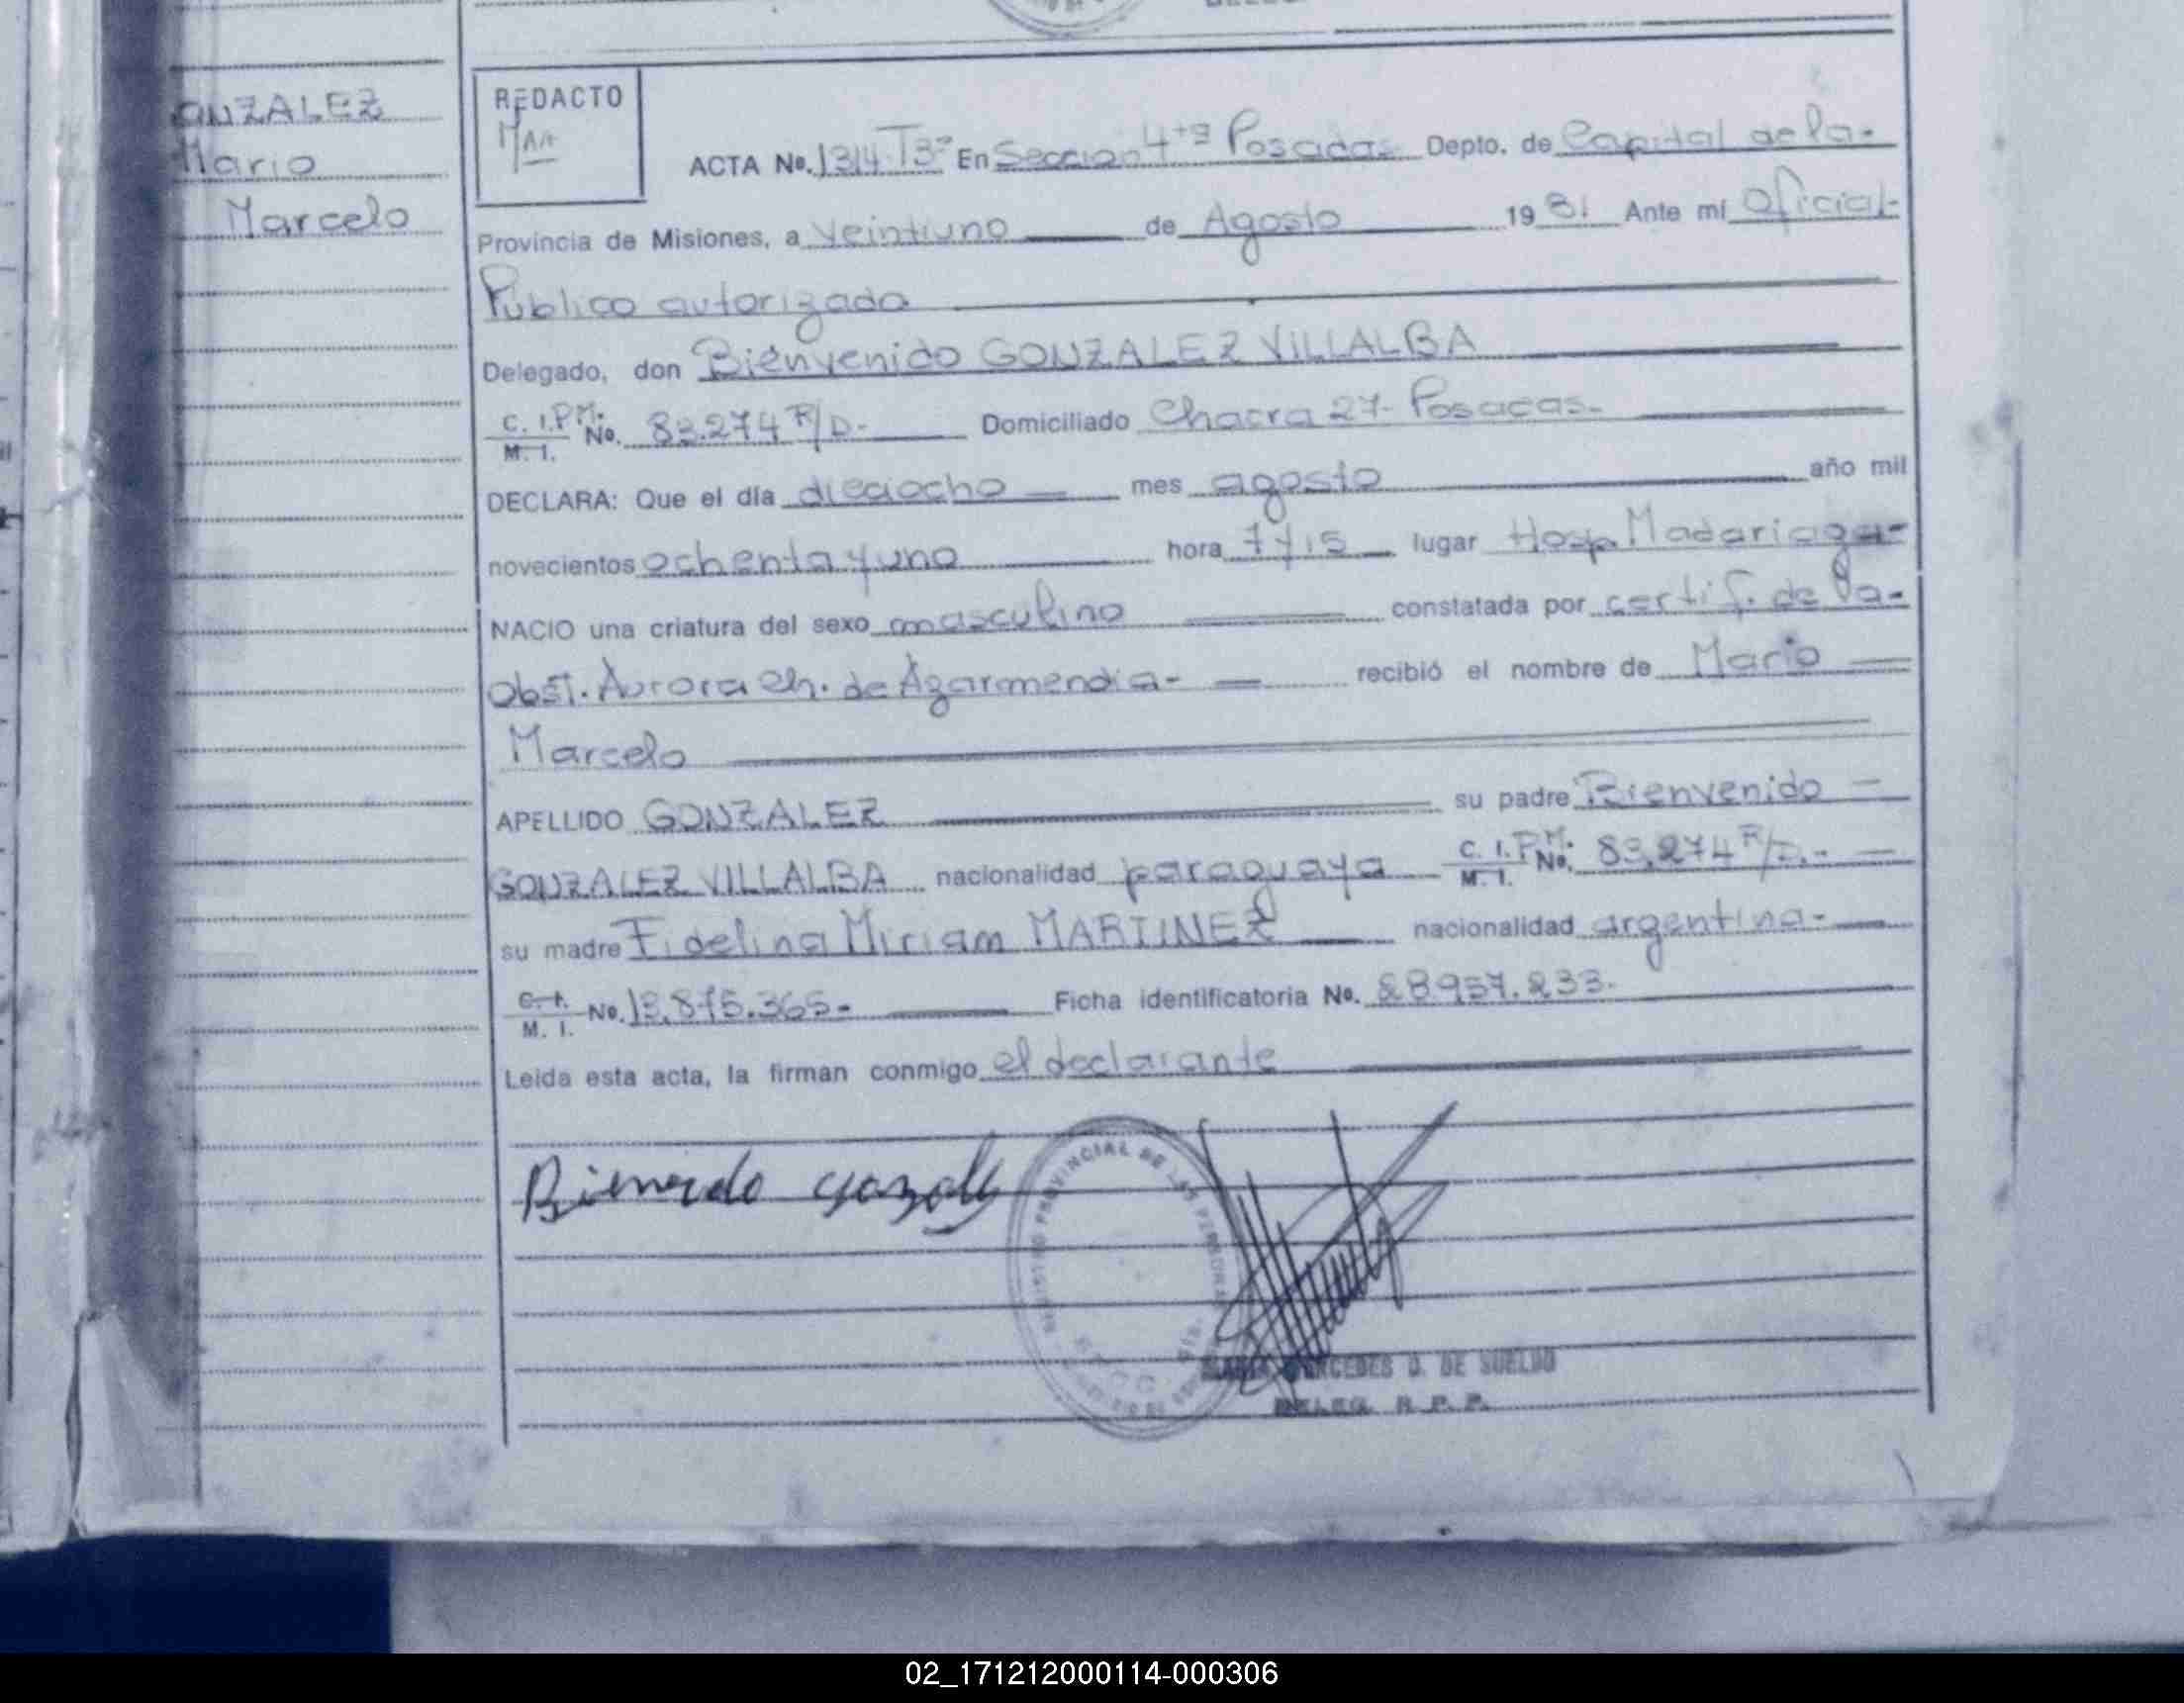 ONZALEZ
Mario
Marcelo
REDACTO
MAA
ACTA No. 1314 T3º En Seccion 4ta Posadas Depto. de Capital de la-
Provincia de Misiones, a veintiuno de Agosto 1981 Ante mí Oficial-
Público autorizado
Delegado, don Bienvenido GONZALEZ VILLALBA
C. I.P.M. No. 83.274 R/D.- Domiciliado Chacra 27- Posadas.-
M. I.
DECLARA: Que el día dieciocho mes agosto año mil
novecientos ochenta y uno hora 7 y 15 lugar Hosp. Madariaga-
NACIO una criatura del sexo masculino constatada por certif. de la-
Obst. Aurora Ch. de Azarmendia- recibió el nombre de Mario
Marcelo
APELLIDO GONZALEZ su padre Bienvenido -
GONZALEZ VILLALBA nacionalidad paraguaya C. I.P.M. No. 83.274 R/D.-
M. I.
su madre Fidelina Miriam MARTINEZ nacionalidad argentina.-
C. I.
M. I. No. 13.875.365.- Ficha identificatoria No. 28.957.233.
Leida esta acta, la firman conmigo el declarante
PROVINCIAL DE LAS PERSONAS
MERCEDES D. DE SUELDO
DELEG. R. P. P.
02_171212000114-000306